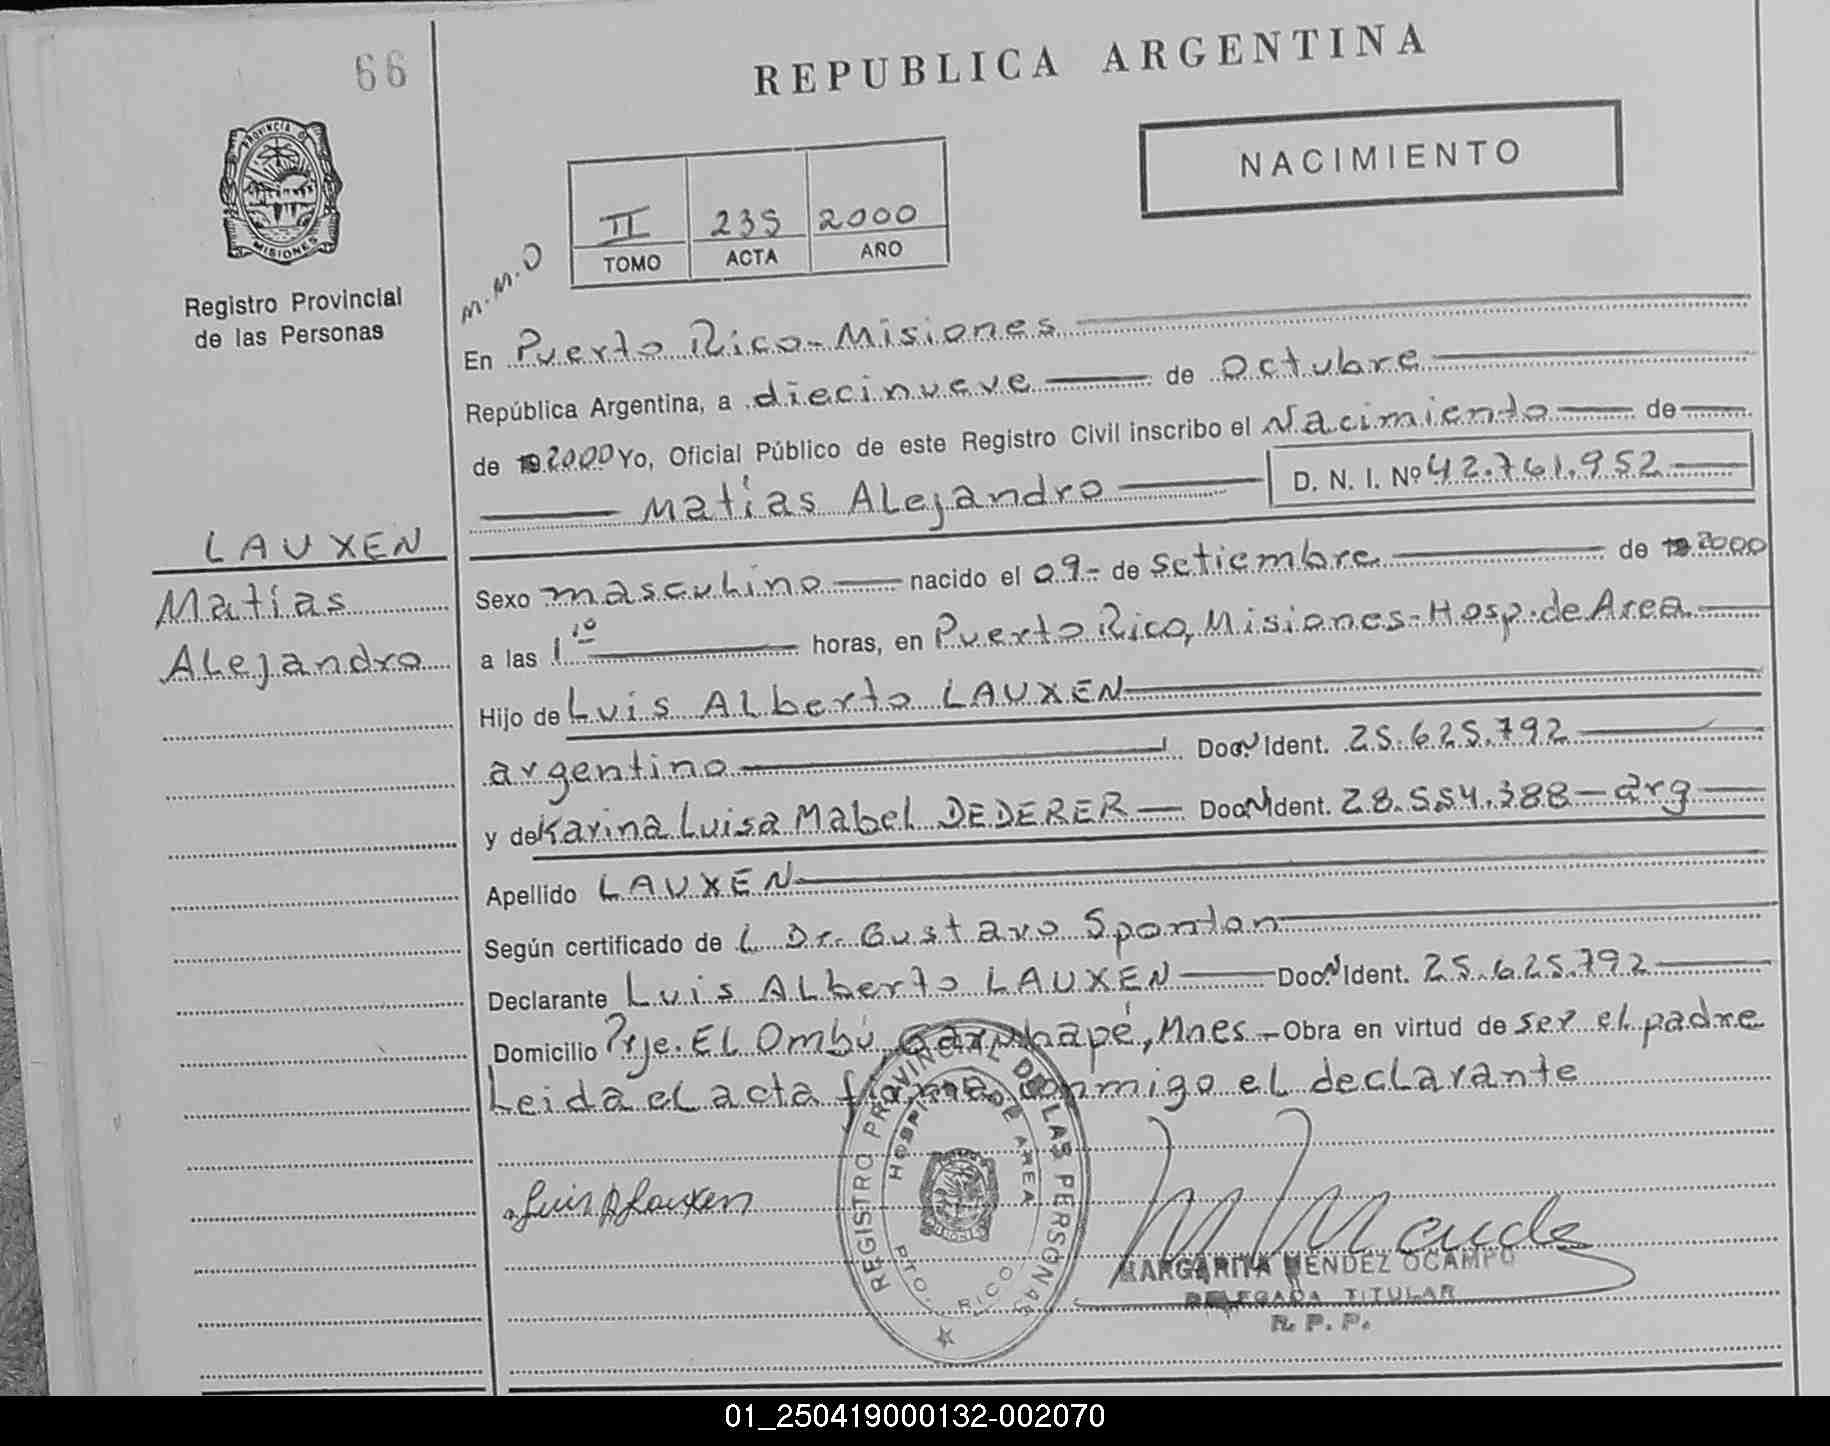 66
REPUBLICA ARGENTINA
NACIMIENTO
PROVINCIA DE
MISIONES
Registro Provincial
de las Personas
II 235 2000
TOMO ACTA AÑO
M.M.O
En Puerto Rico-Misiones
República Argentina, a diecinueve de Octubre
de 2000 Yo, Oficial Público de este Registro Civil inscribo el Nacimiento de
Matías Alejandro D. N. I. Nº 42.761.952
LAUXEN
Matías
Alejandro
Sexo masculino nacido el 09- de setiembre de 2000
a las 1¹⁰ horas, en Puerto Rico, Misiones-Hosp.de Area
Hijo de Luis Alberto LAUXEN
argentino Doc.N Ident. 25.625.792
y de Karina Luisa Mabel DEDERER Doc.N Ident. 28.554.388-arg
Apellido LAUXEN
Según certificado de L Dr. Gustavo
Declarante Luis Alberto LAUXEN Doc.N Ident. 25.625.792
Domicilio Pje. El Ombú, Garuhapé, Mnes - Obra en virtud de ser el padre
Leida el acta firma conmigo el declarante
Luis A Lauxen
REGISTRO PROVINCIAL DE LAS PERSONAS
HOSPITAL DE AREA
PTO. RICO
MARGARITA MENDEZ OCAMPO
DELEGADA TITULAR
R. P. P.
01_250419000132-002070